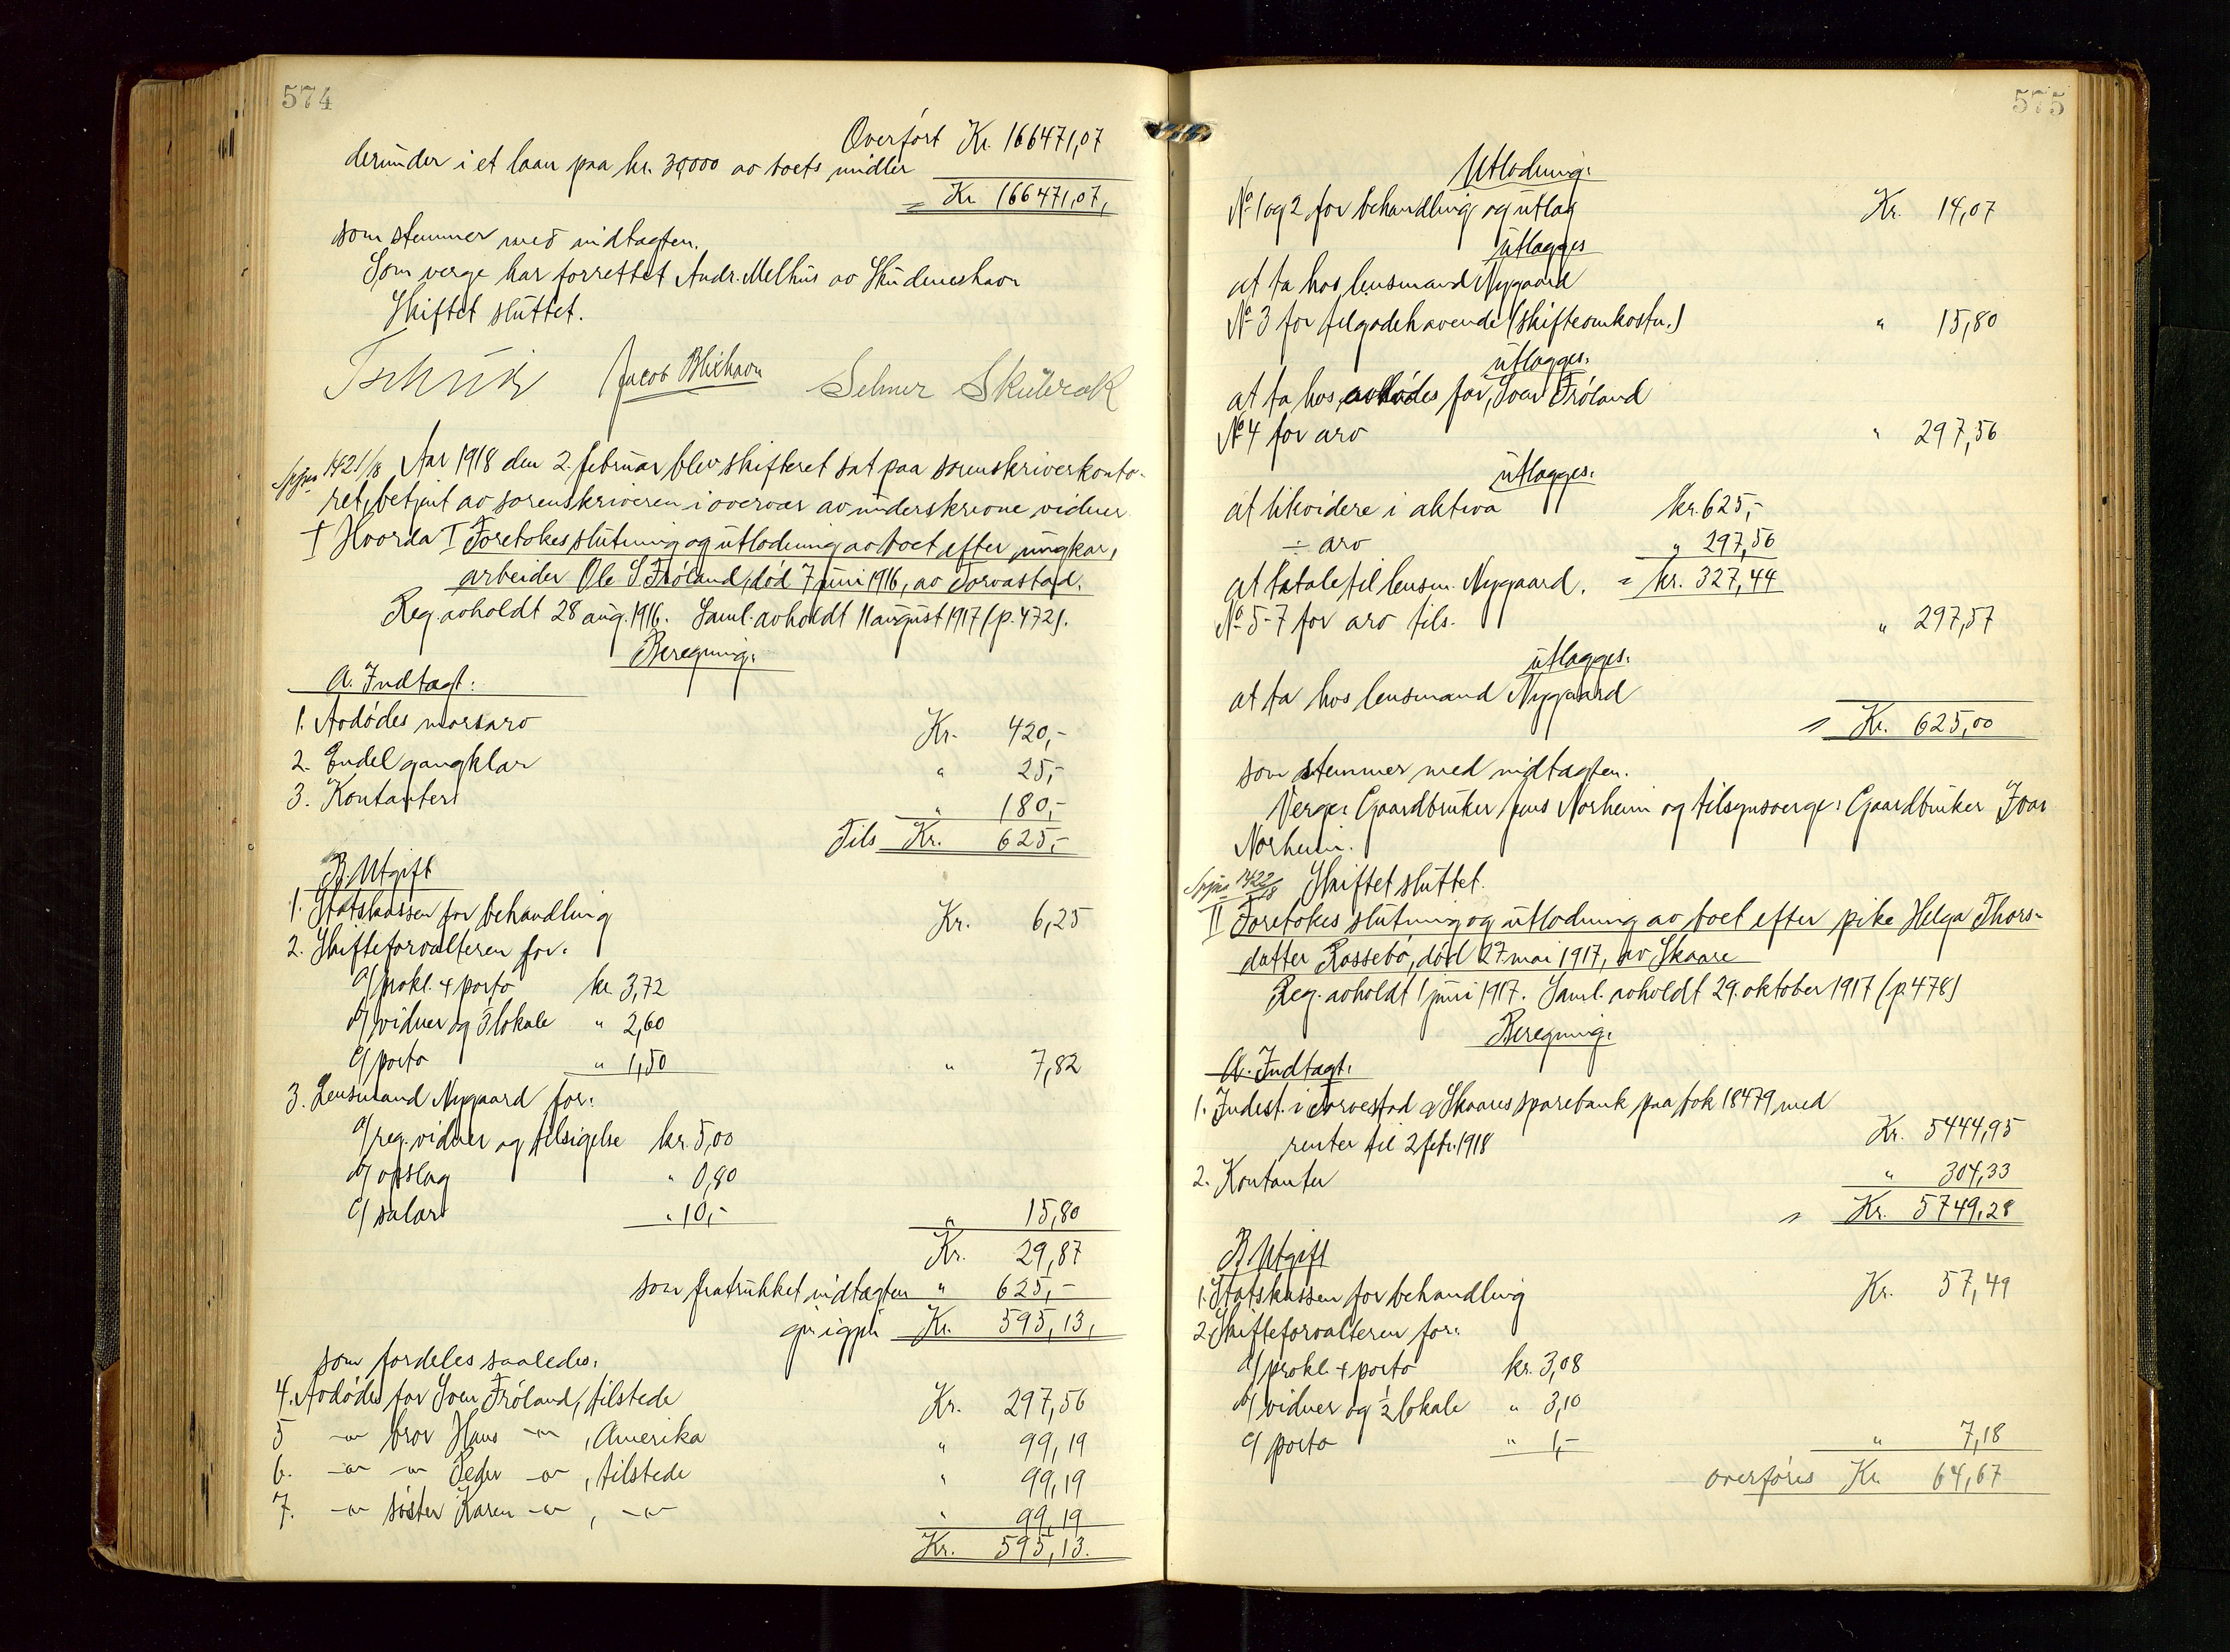 574
Overført Kr. 166471,07
derunder i et laan paa kr. 30,000 av boets midler
= Kr. 166471,07,
som stemmer med indtagten.
Som verge har forrettet Andr. Melhus av Skudeneshavn
Skiftet sluttet.
Jacob Blixhavn Selmer
1421/18 Aar 1918 den 2. februar blev skifteret sat paa sorenskriverkonto-
ret, betjent av sorenskriveren i overvær av underskrevne vidner.
Hvorda I Foretokes slutning og utlodning av boet efter ungkar,
arbeider Ole S. Frøland, død 7 juni 1916, av Torvastad.
Reg. avholdt 28 aug. 1916. Saml. avholdt 11 august 1917 (p. 472).
Beregning:
A. Indtagt:
1. Avdødes morsarv Kr. 420,-
2. Endel gangklær " 25,-
3. Kontanter " 180,-
Tils Kr. 625,-
B. Utgift
1. Statskassen for behandling Kr. 6,25
2. Skifteforvalteren for:
a/ prokl. + porto kr. 3,72
b/ vidner og lokale " 2,60
c/ porto " 1,50 " 7,82
3. Lensmand Nygaard for:
a/ reg. vidner og tilsigelse kr. 5,00
b/ opslag " 0,80
c/ salær " 10,- " 15,80
Kr. 29,87
som fratrukket indtagten " 625,-
gir igjen Kr. 595,13,
som fordeles saaledes:
4. Avdødes far Sven Frøland, tilstede Kr. 297,56
5 -"- bror Hans -"-, Amerika " 99,19
6. -"- -"- Peder -"-, tilstede " 99,19
7. -"- søster Karen -"-, -"- " 99,19
Kr. 595,13.
575
Utlodning:
No 1 og 2 for behandling og utlæg Kr. 14,07
utlægges
at ta hos lensmand Nygaard
No 3 for tilgodehavende (skifteomkostn.) " 15,80
utlægges:
at ta hos avdødes far, Sven Frøland
No 4 for arv " 297,56
utlægges:
at likvidere i aktiva kr. 625,-
÷ arv " 297,56
at betale til lensm. Nygaard. = kr. 327,44
No 5-7 for arv tils. " 297,57
utlægges:
at ta hos lensmand Nygaard
= Kr. 625,00
som stemmer med indtagten.
Verge: Gaardbruker Jens Norheim og tilsynsverge: Gaardbruker Ivar
Norheim.
1422/18 Skiftet sluttet.
II Foretokes slutning og utlodning av boet efter pike Helga Thors-
datter Rossebø, død 27 mai 1917, av Skaare
Reg. avholdt 1 juni 1917. Saml. avholdt 29. oktober 1917 (p. 478)
Beregning:
A. Indtagt:
1. Indest. i Torvestad & Skaares sparebank paa bok 18479 med
renter til 2 febr. 1918 Kr. 5444,95
2. Kontanter " 304,33
= Kr. 5749,28
B. Utgift
1. Statskassen for behandling Kr. 57,49
2. Skifteforvalteren for:
a/ prokl. + porto kr. 3,08
b/ vidner og 1/2 lokale " 3,10
c/ porto " 1,- " 7,18
overføres Kr. 64,67